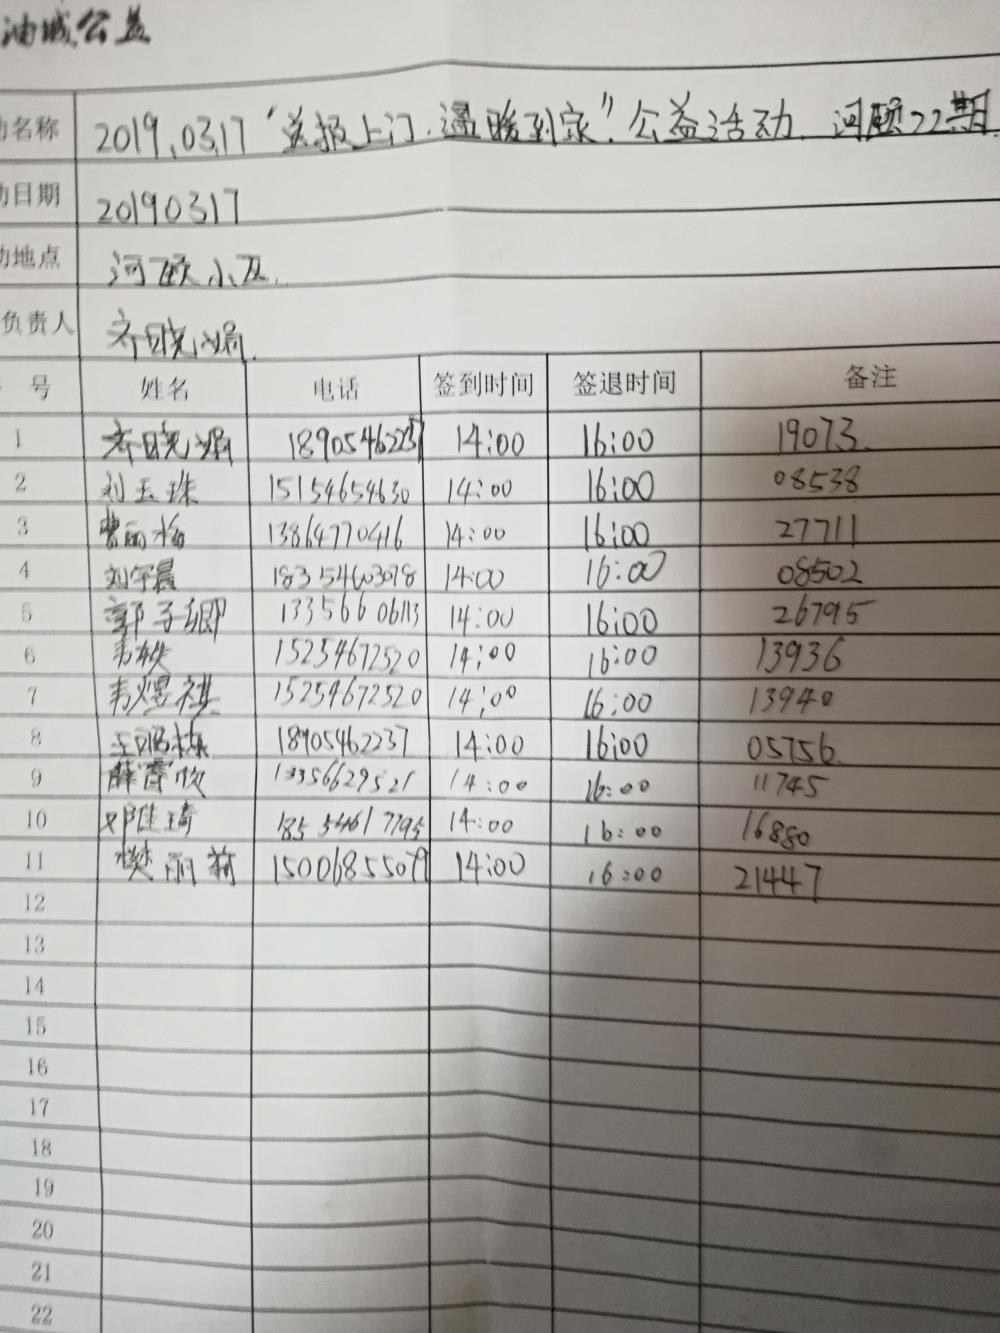 油城公益
动名称 2019.03.17“送报上门.温暖到家”公益活动.河颐22期.
动日期 20190317
动地点 河颐小区.
负责人 齐晓娟.
号 姓名 电话 签到时间 签退时间 备注
1 齐晓娟 18905462237 14:00 16:00 19073.
2 刘玉珠 15154654630 14:00 16:00 08538
3 曹丽梅 13864770416 14:00 16:00 27711
4 刘宇晨 18354603078 14:00 16:00 08502
5 郭子卿 13356606113 14:00 16:00 26795
6 韦轶 15254672520 14:00 16:00 13936
7 韦煜祺 15254672520 14:00 16:00 13940
8 18905462237 14:00 16:00 05756
9 薛睿欣 13356629521 14:00 16:00 11745
10 邓维琦 18554617795 14:00 16:00 16880
11 樊丽莉 15006855079 14:00 16:00 21447
12
13
14
15
16
17
18
19
20
21
22